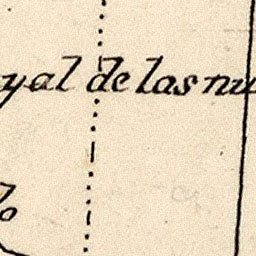 yal de las nu
lo